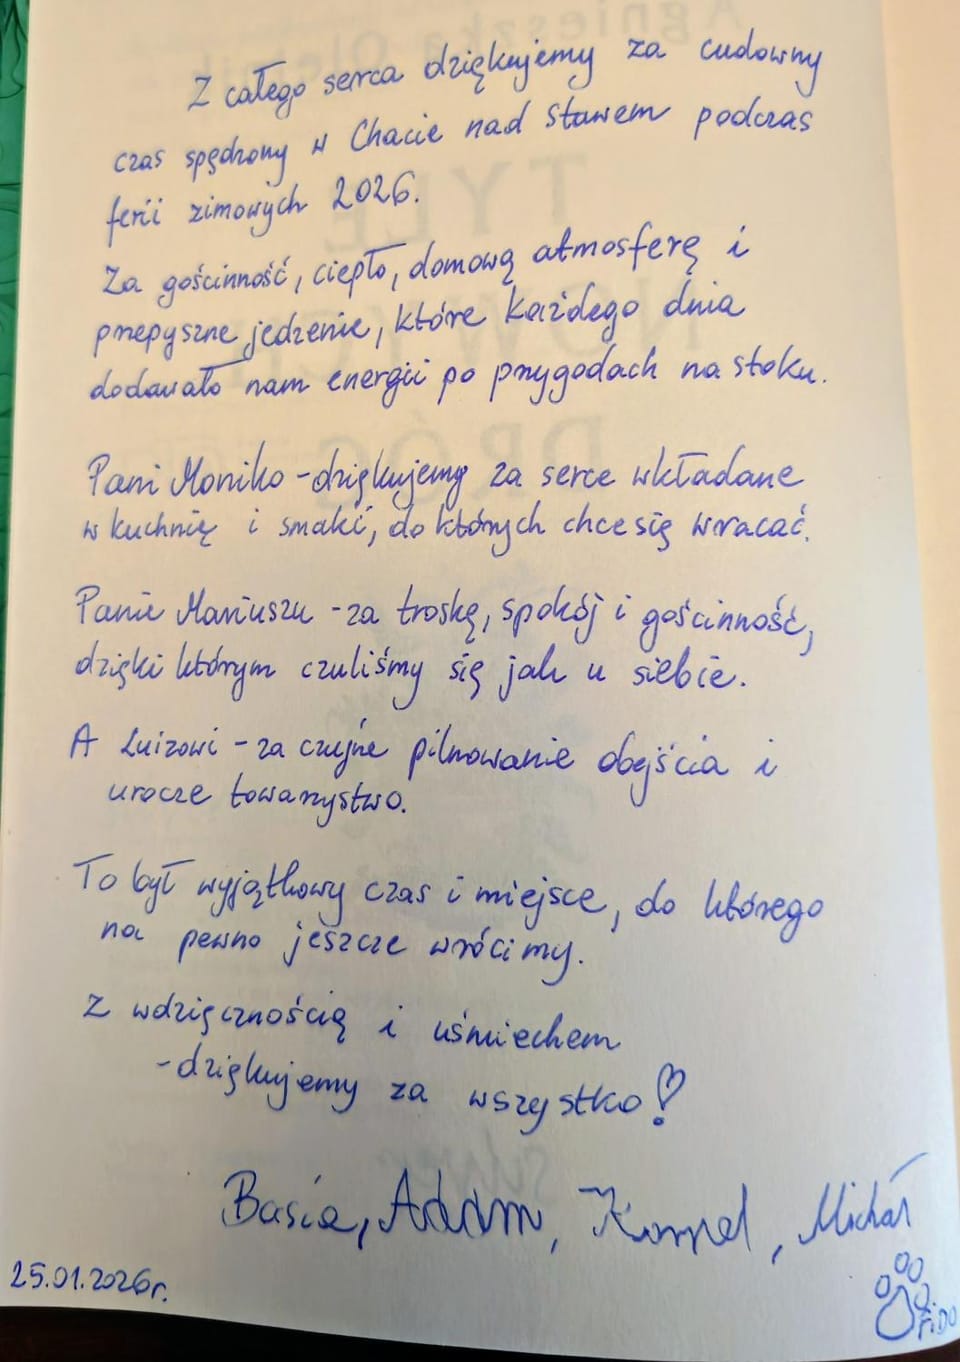 Z całego serca dziękujemy za cudowny
czas spędzony w Chacie nad stawem podczas
ferii zimowych 2026.
Za gościnność, ciepło, domową atmosferę i
przepyszne jedzenie, które każdego dnia
dodawało nam energii po przygodach na stoku.
Pani Moniko - dziękujemy za serce wkładane
w kuchnię i smaki, do których chce się wracać.
Panie Mariuszu - za troskę, spokój i gościnność,
dzięki którym czuliśmy się jak u siebie.
A Luizowi - za czujne pilnowanie obejścia i
urocze towarzystwo.
To był wyjątkowy czas i miejsce, do którego
na pewno jeszcze wrócimy.
Z wdzięcznością i uśmiechem
- dziękujemy za wszystko!
Basia, Adam, Kornel, Michał
25.01.2026r.
FiDO